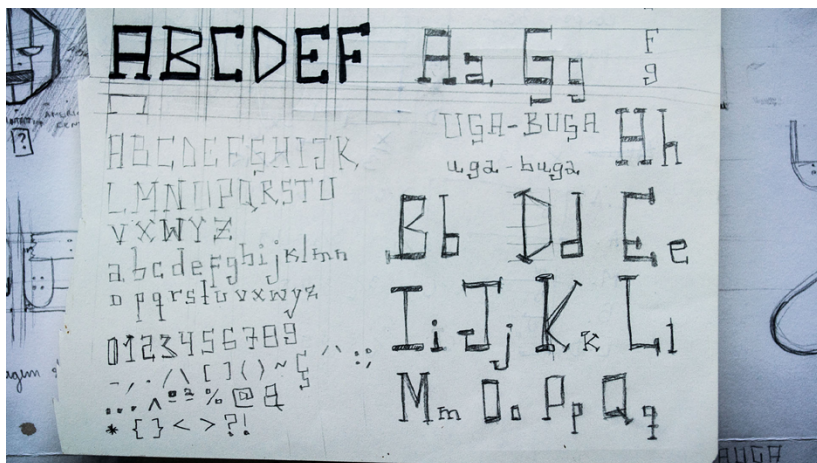 ABCDEF
ABCDEFGHIJK
LMNOPQRSTU
VXWYZ
abcdefghijklmn
opqrstuvxwyz
0123456789
-,./\[]()~Ç^:;
...^ºª%@&
*{}<>?!
Aa Gg
F
g
UGA-BUGA
uga-buga
Hh
Bb Dd Ee
Ii Jj Kk Ll
Mm Oo Pp Qq
?
agem
BUGA